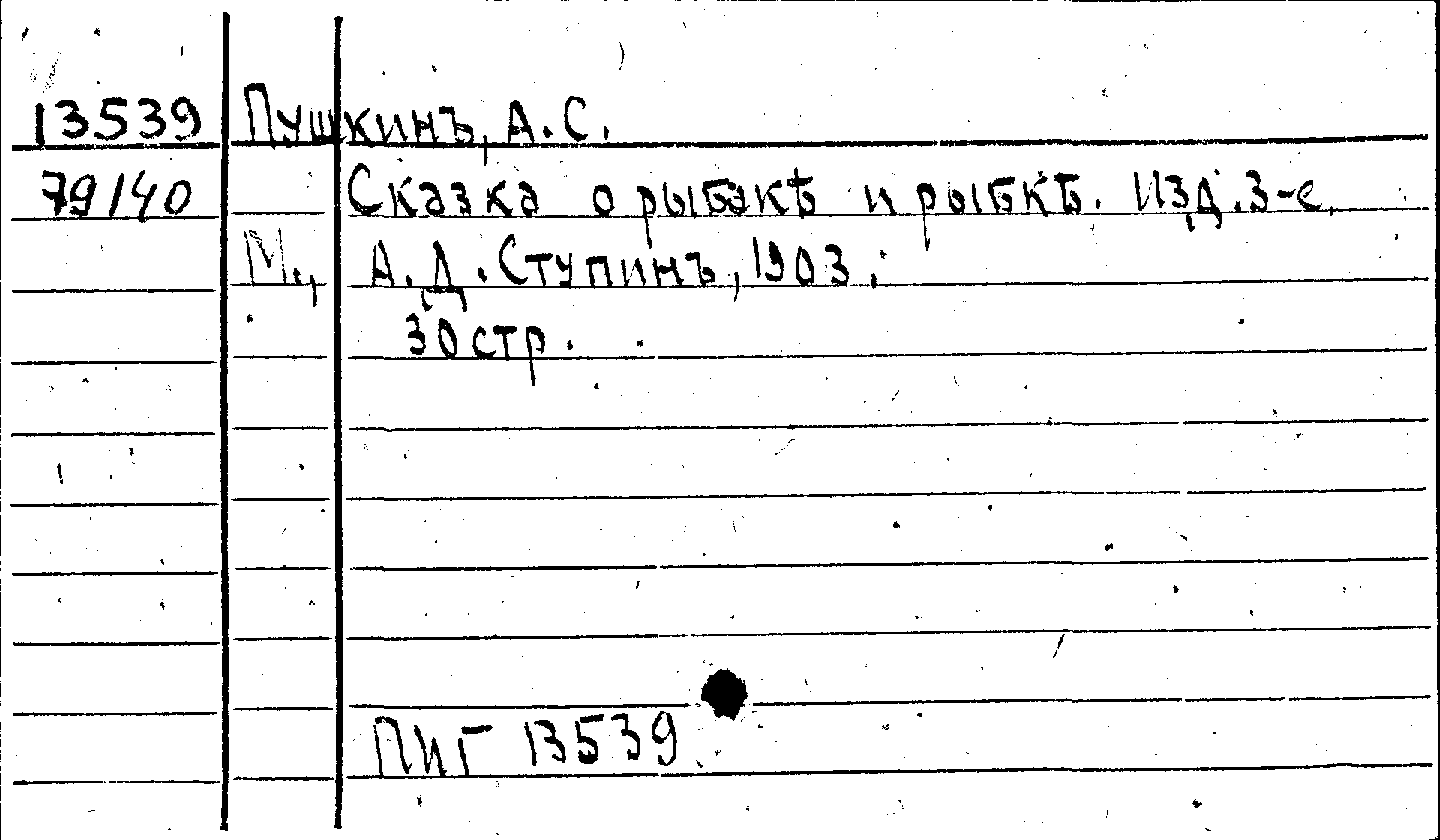 13539 Пушкинъ, А.С.
79140 Сказка о рыбакѣ и рыбкѣ. Изд. 3-е.
М., А.Д. Ступинъ, 1903.
30 стр.
ПИГ 13539